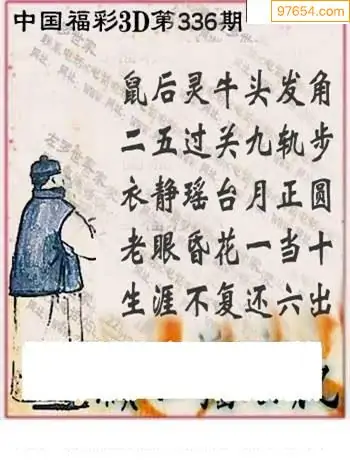 97654.com
中国福彩3D第336期
鼠后灵牛头发角
二五过关九轨步
衣静瑶台月正圆
老眼昏花一当十
生涯不复还六出